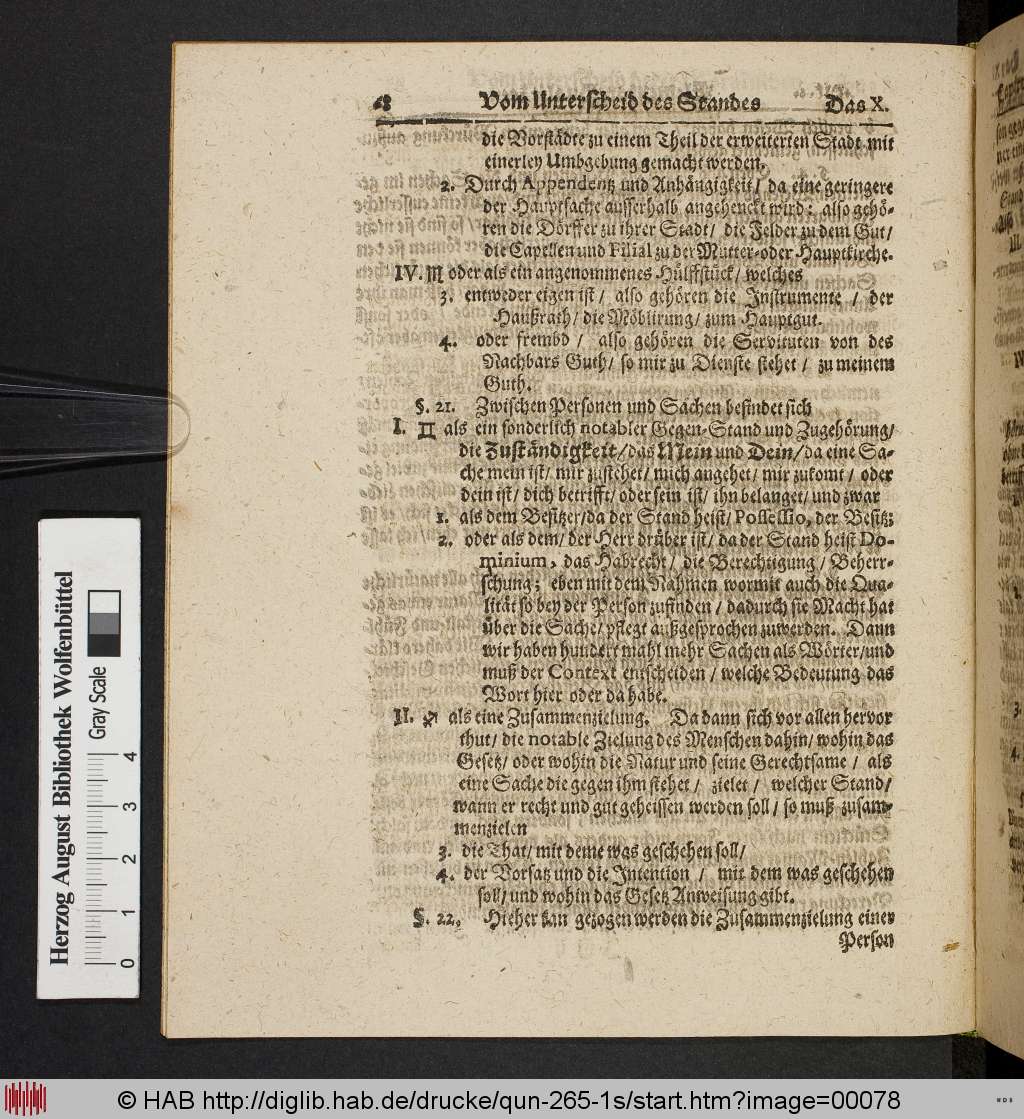 68 Vom Unterscheid des Standes Das X.
die Vorstädte zu einem Theil der erweiterten Stadt mit
einerley Umbgebung gemacht werden.
2. Durch Appendentz und Anhängigkeit/ da eine geringere
der Hauptsache ausserhalb angehenckt wird; also gehö-
ren die Dörffer zu ihrer Stadt/ die Felder zu dem Gut/
die Capellen und Filial zu der Mutter-oder Hauptkirche.
IV. ♏ oder als ein angenommenes Hülffstück/ welches
3. entweder eigen ist/ also gehören die Instrumente / der
Haußrath/ die Möblirung/ zum Hauptgut.
4. oder frembd / also gehören die Servituten von des
Nachbars Guth/ so mir zu Dienste stehet / zu meinem
Guth.
§. 21. Zwischen Personen und Sachen befindet sich
I. ♊ als ein sonderlich notabler Gegen-Stand und Zugehörung/
die Zuständigkeit/das Mein und Dein/da eine Sa-
che mein ist/ mir zustehet/ mich angehet/ mir zukomt / oder
dein ist/ dich betrifft/ oder sein ist/ ihn belanget/ und zwar
1. als dem Besitzer/da der Stand heist/ Possessio, der Besitz;
2. oder als dem/ der Herr drüber ist/ da der Stand heist Do-
minium, das Habrecht/ die Berechtigung / Beherr-
schung; eben mit dem Nahmen wormit auch die Qua-
lität so bey der Person zufinden / dadurch sie Macht hat
über die Sache/ pflegt außgesprochen zuwerden. Dann
wir haben hundert mahl mehr Sachen als Wörter/und
muß der Context entscheiden / welche Bedeutung das
Wort hier oder da habe.
II. ♐ als eine Zusammenzielung. Da dann sich vor allen hervor
thut/ die notable Zielung des Menschen dahin/ wohin das
Gesetz/ oder wohin die Natur und seine Gerechtsame / als
eine Sache die gegen ihm stehet / zielet / welcher Stand/
wann er recht und gut geheissen werden soll / so muß zusam-
menzielen
3. die That/ mit deme was geschehen soll/
4. der Vorsatz und die Intention / mit dem was geschehen
soll/ und wohin das Gesetz Anweisung gibt.
§. 22. Hieher kan gezogen werden die Zusammenzielung einer
Person
Herzog August Bibliothek Wolfenbüttel
Gray Scale
0 1 2 3 4
© HAB http://diglib.hab.de/drucke/qun-265-1s/start.htm?image=00078